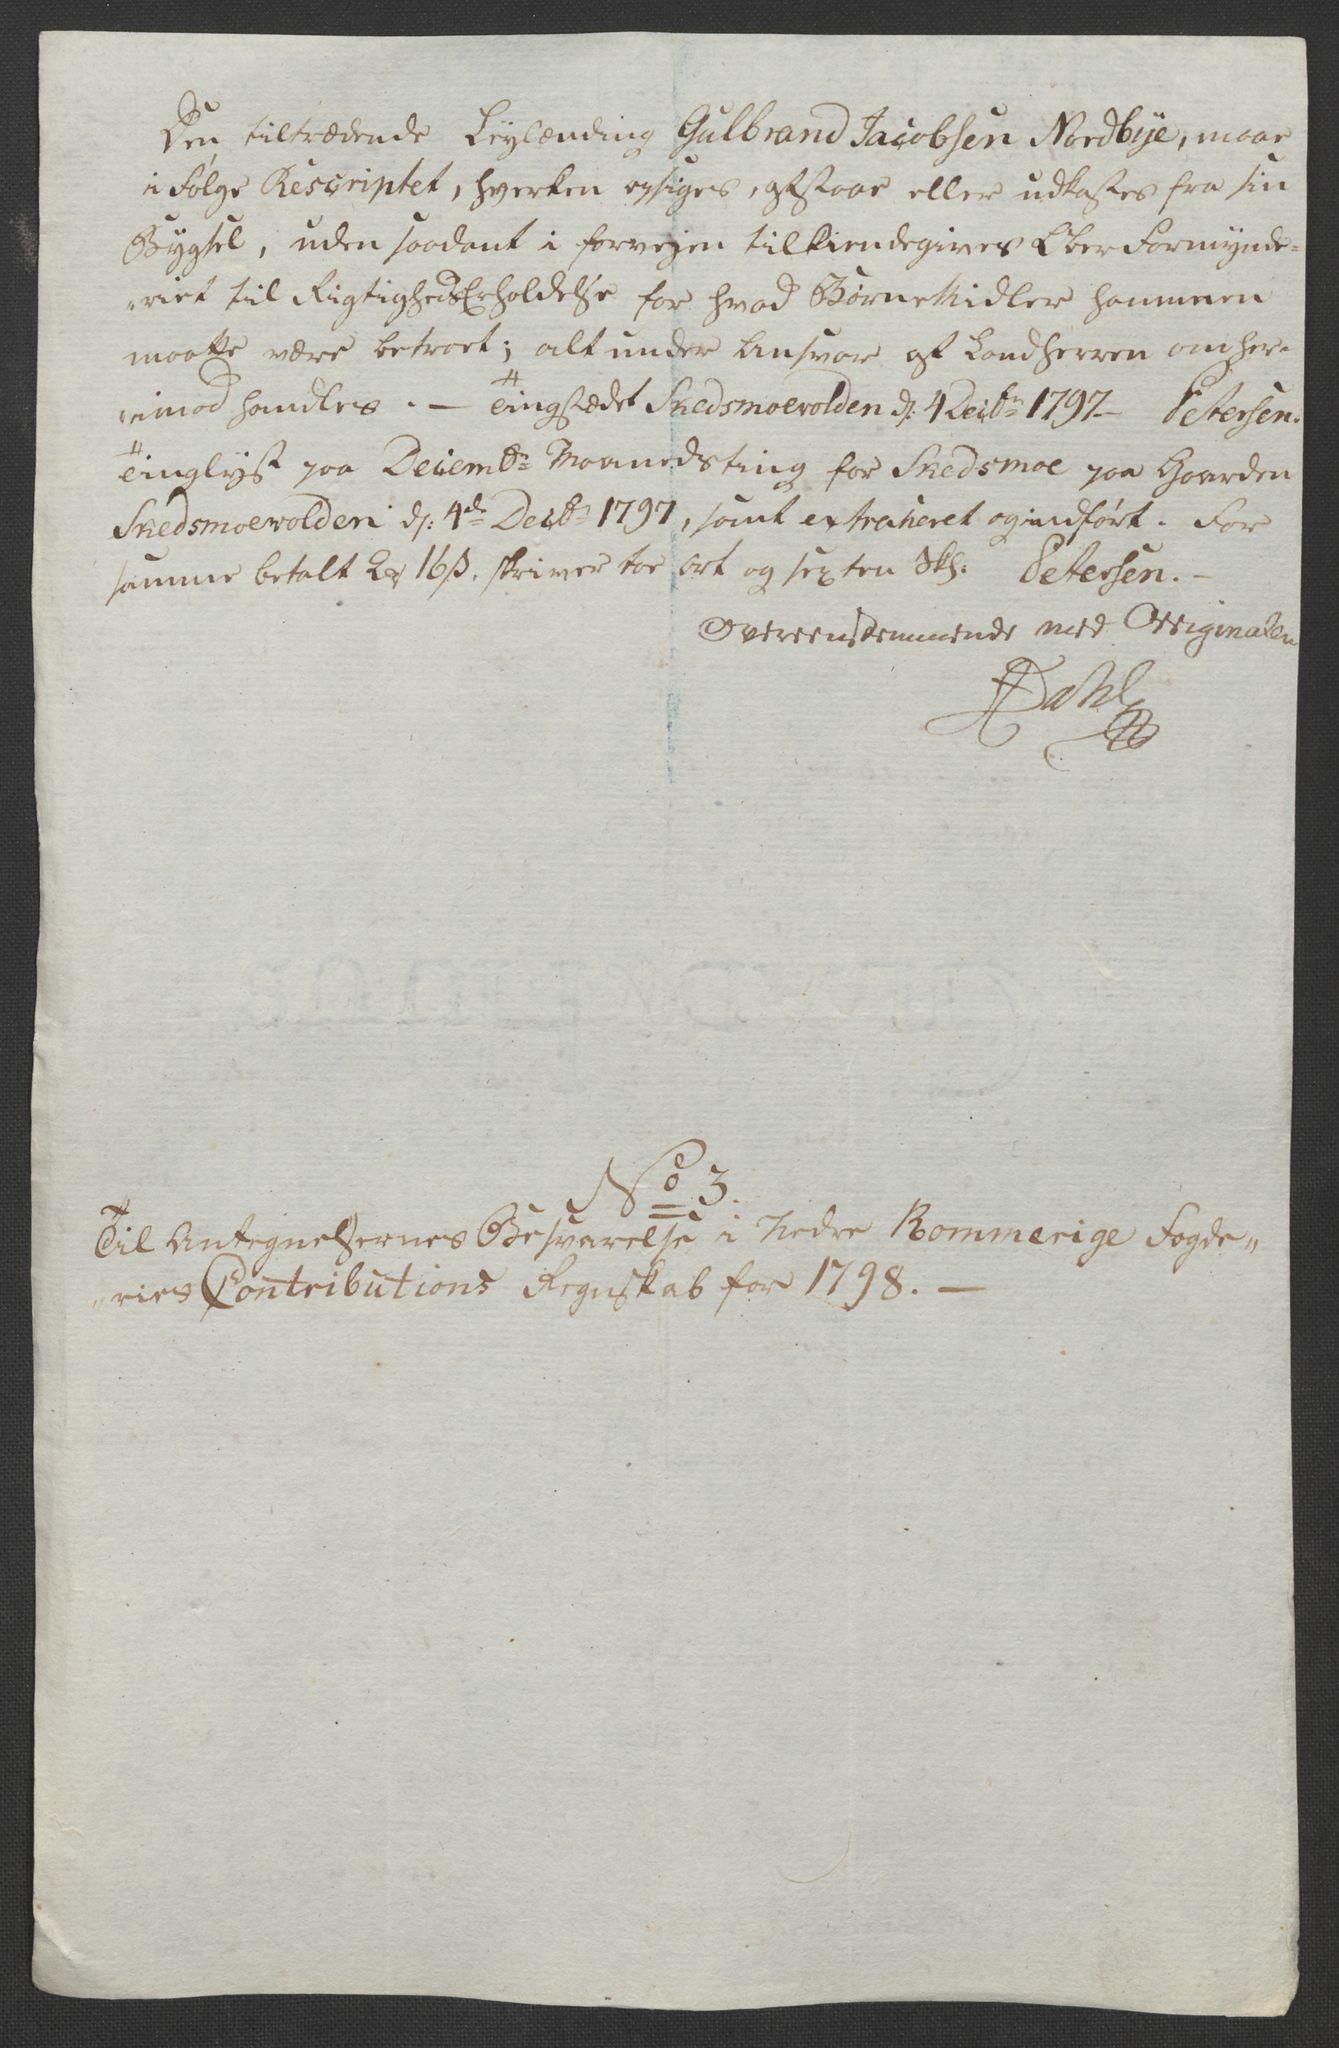 Den tiltrædende Leylænding Gulbrand Jacobsen Nordbye, maae
i Følge Rescriptet, hverken opsiges, afstaae eller udkastes fra sin
Bygsel, uden saadant i forvejen tilkiendegives Over Formynde-
riet til Rigtigheds Erholdelse for hvad Børne Midler hannem
maatte være betroet; alt under Ansvar af Landherren om her-
imod handles. — Tingstædet Skedsmoevolden d: 4 Decbr 1797 — Petersen.
Tinglyst paa Decembr Maanedsting for Skedsmoe paa Gaarden
Skedsmoevolden d: 4de Decbr 1797, samt extraheret og indført. For
samme betalt 2 16 ß. skriver toe ort og sexten Skl. Petersen. —
Overeensstemmende med Originalen
Dahl
No 3.
Til Antegnelsernes Besvarelse i Nedre Rommerige Fogde-
ries Contributions Regnskab for 1798. —